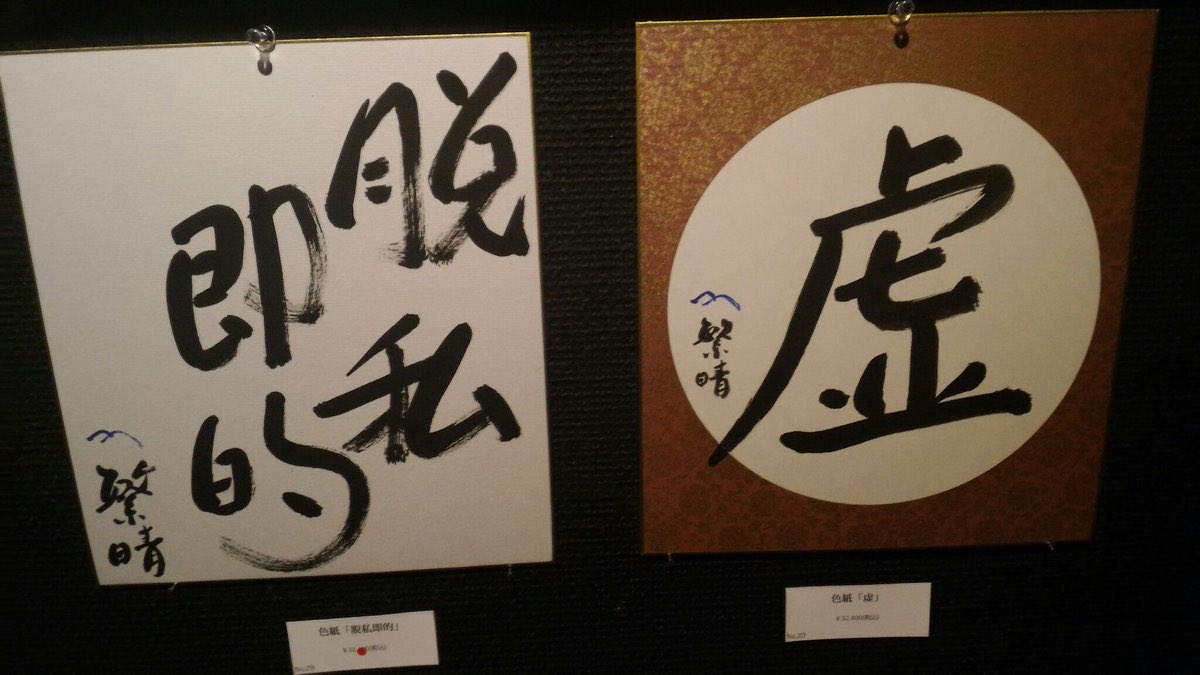 脱私
即的
繁晴
色紙「脱私即的」
No.29
虚
繁晴
色紙「虚」
¥32,400(税込)
No.20